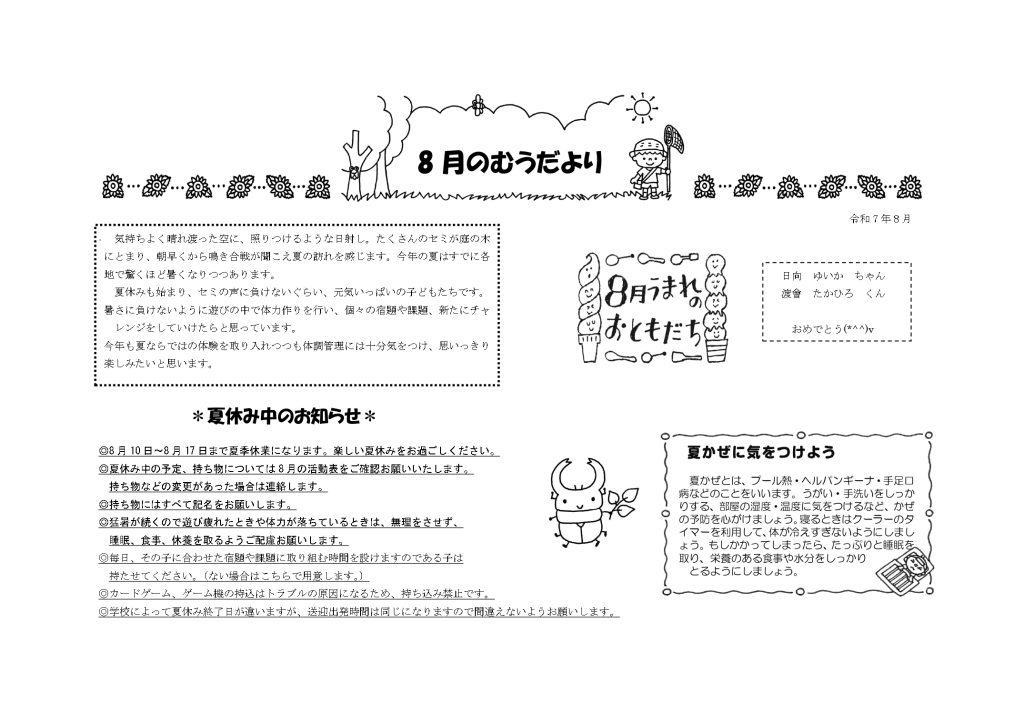 8月のむうだより
令和７年８月
気持ちよく晴れ渡った空に、照りつけるような日射し。たくさんのセミが庭の木
にとまり、朝早くから鳴き合戦が聞こえ夏の訪れを感じます。今年の夏はすでに各
地で驚くほど暑くなりつつあります。
夏休みも始まり、セミの声に負けないぐらい、元気いっぱいの子どもたちです。
暑さに負けないように遊びの中で体力作りを行い、個々の宿題や課題、新たにチャ
レンジをしていけたらと思っています。
今年も夏ならではの体験を取り入れつつも体調管理には十分気をつけ、思いっきり
楽しみたいと思います。
8月うまれの
おともだち
日向　ゆいか　ちゃん
渡會　たかひろ　くん
おめでとう(*^^)v
＊夏休み中のお知らせ＊
◎8月10日～8月17日まで夏季休業になります。楽しい夏休みをお過ごしください。
◎夏休み中の予定、持ち物については８月の活動表をご確認お願いいたします。
持ち物などの変更があった場合は連絡します。
◎持ち物にはすべて記名をお願いします。
◎猛暑が続くので遊び疲れたときや体力が落ちているときは、無理をさせず、
睡眠、食事、休養を取るようご配慮お願いします。
◎毎日、その子に合わせた宿題や課題に取り組む時間を設けますのである子は
持たせてください。（ない場合はこちらで用意します。）
◎カードゲーム、ゲーム機の持込はトラブルの原因になるため、持ち込み禁止です。
◎学校によって夏休み終了日が違いますが、送迎出発時間は同じになりますので間違えないようお願いします。
夏かぜに気をつけよう
夏かぜとは、プール熱・ヘルパンギーナ・手足口
病などのことをいいます。うがい・手洗いをしっか
りする、部屋の湿度・温度に気をつけるなど、かぜ
の予防を心がけましょう。寝るときはクーラーのタ
イマーを利用して、体が冷えすぎないようにしましょ
う。もしかかってしまったら、たっぷりと睡眠を
取り、栄養のある食事や水分をしっかり
とるようにしましょう。